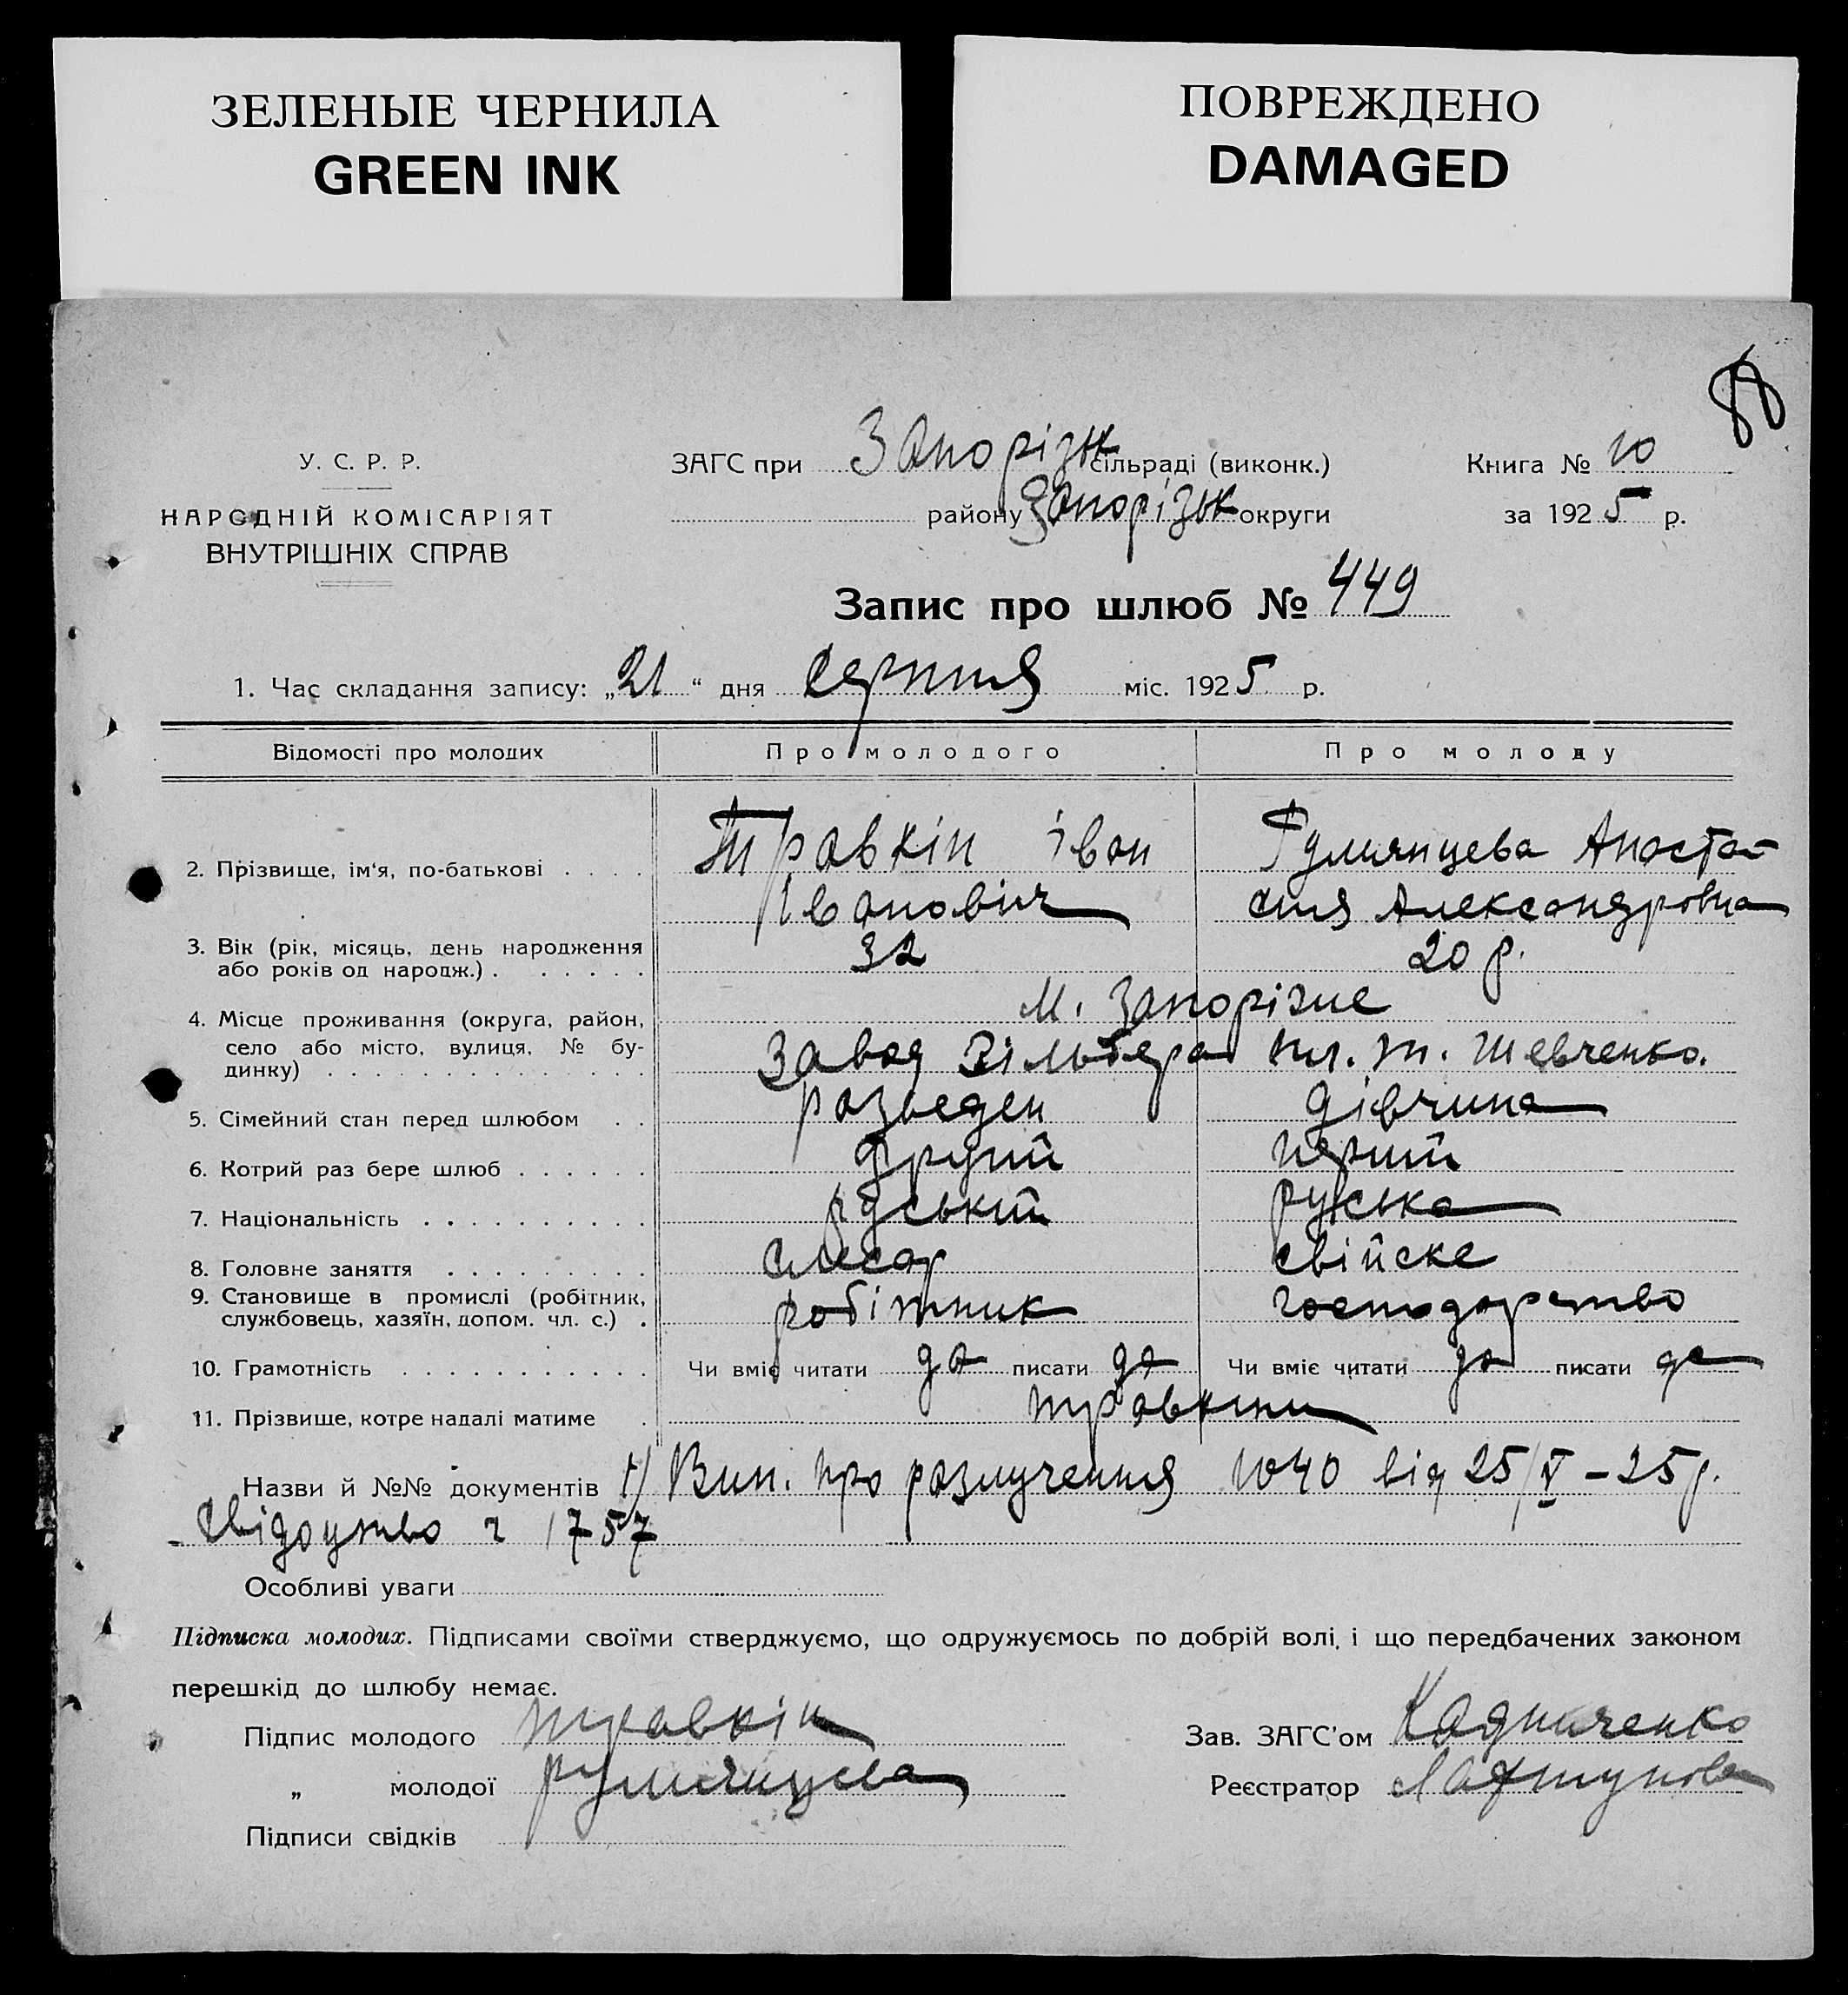 ЗЕЛЕНЫЕ ЧЕРНИЛА
GREEN INK
ПОВРЕЖДЕНО
DAMAGED
У. С. Р. Р.
НАРОДНІЙ КОМІСАРІЯТ
ВНУТРІШНІХ СПРАВ
ЗАГС при Запорізьк сільраді (виконк.)
району Запорізьк округи
Книга № 10
за 1925 р.
Запис про шлюб № 449
1. Час складання запису: „21“ дня серпня міс. 1925 р.
Відомості про молодих Про молодого Про молоду
2. Прізвище, ім'я, по-батькові . . . . Травкін Іван Румянцева Анаста-
Іванович сия Александровна
3. Вік (рік, місяць, день народження
або років од народж.) . . . . . . 32 20 р.
4. Місце проживання (округа, район,
село або місто, вулиця, № бу-
динку) . . . . . . . . . . . . . . .
м. Запоріжже
Завод пл. Т. Шевченко.
5. Сімейний стан перед шлюбом . . разведен дівчина
6. Котрий раз бере шлюб . . . . . . другий перший
7. Національність . . . . . . . . . . руський руська
8. Головне заняття . . . . . . . . . слесар свійске
9. Становище в промислі (робітник,
службовець, хазяїн, допом. чл. с.) . робітник господарство
10. Грамотність . . . . . . . . . . . Чи вміє читати да писати да Чи вміє читати да писати да
11. Прізвище, котре надалі матиме . Травкини
Назви й №№ документів 1) Вип. про разлучення 1040 від 25/V–25 р.
Свідоцтво ч 1757
Особливі уваги
Підписка молодих. Підписами своїми стверджуємо, що одружуємось по добрій волі, і що передбачених законом
перешкід до шлюбу немає.
Підпис молодого Травкін
„ молодої Румянцева
Підписи свідків
Зав. ЗАГС'ом
Реєстратор